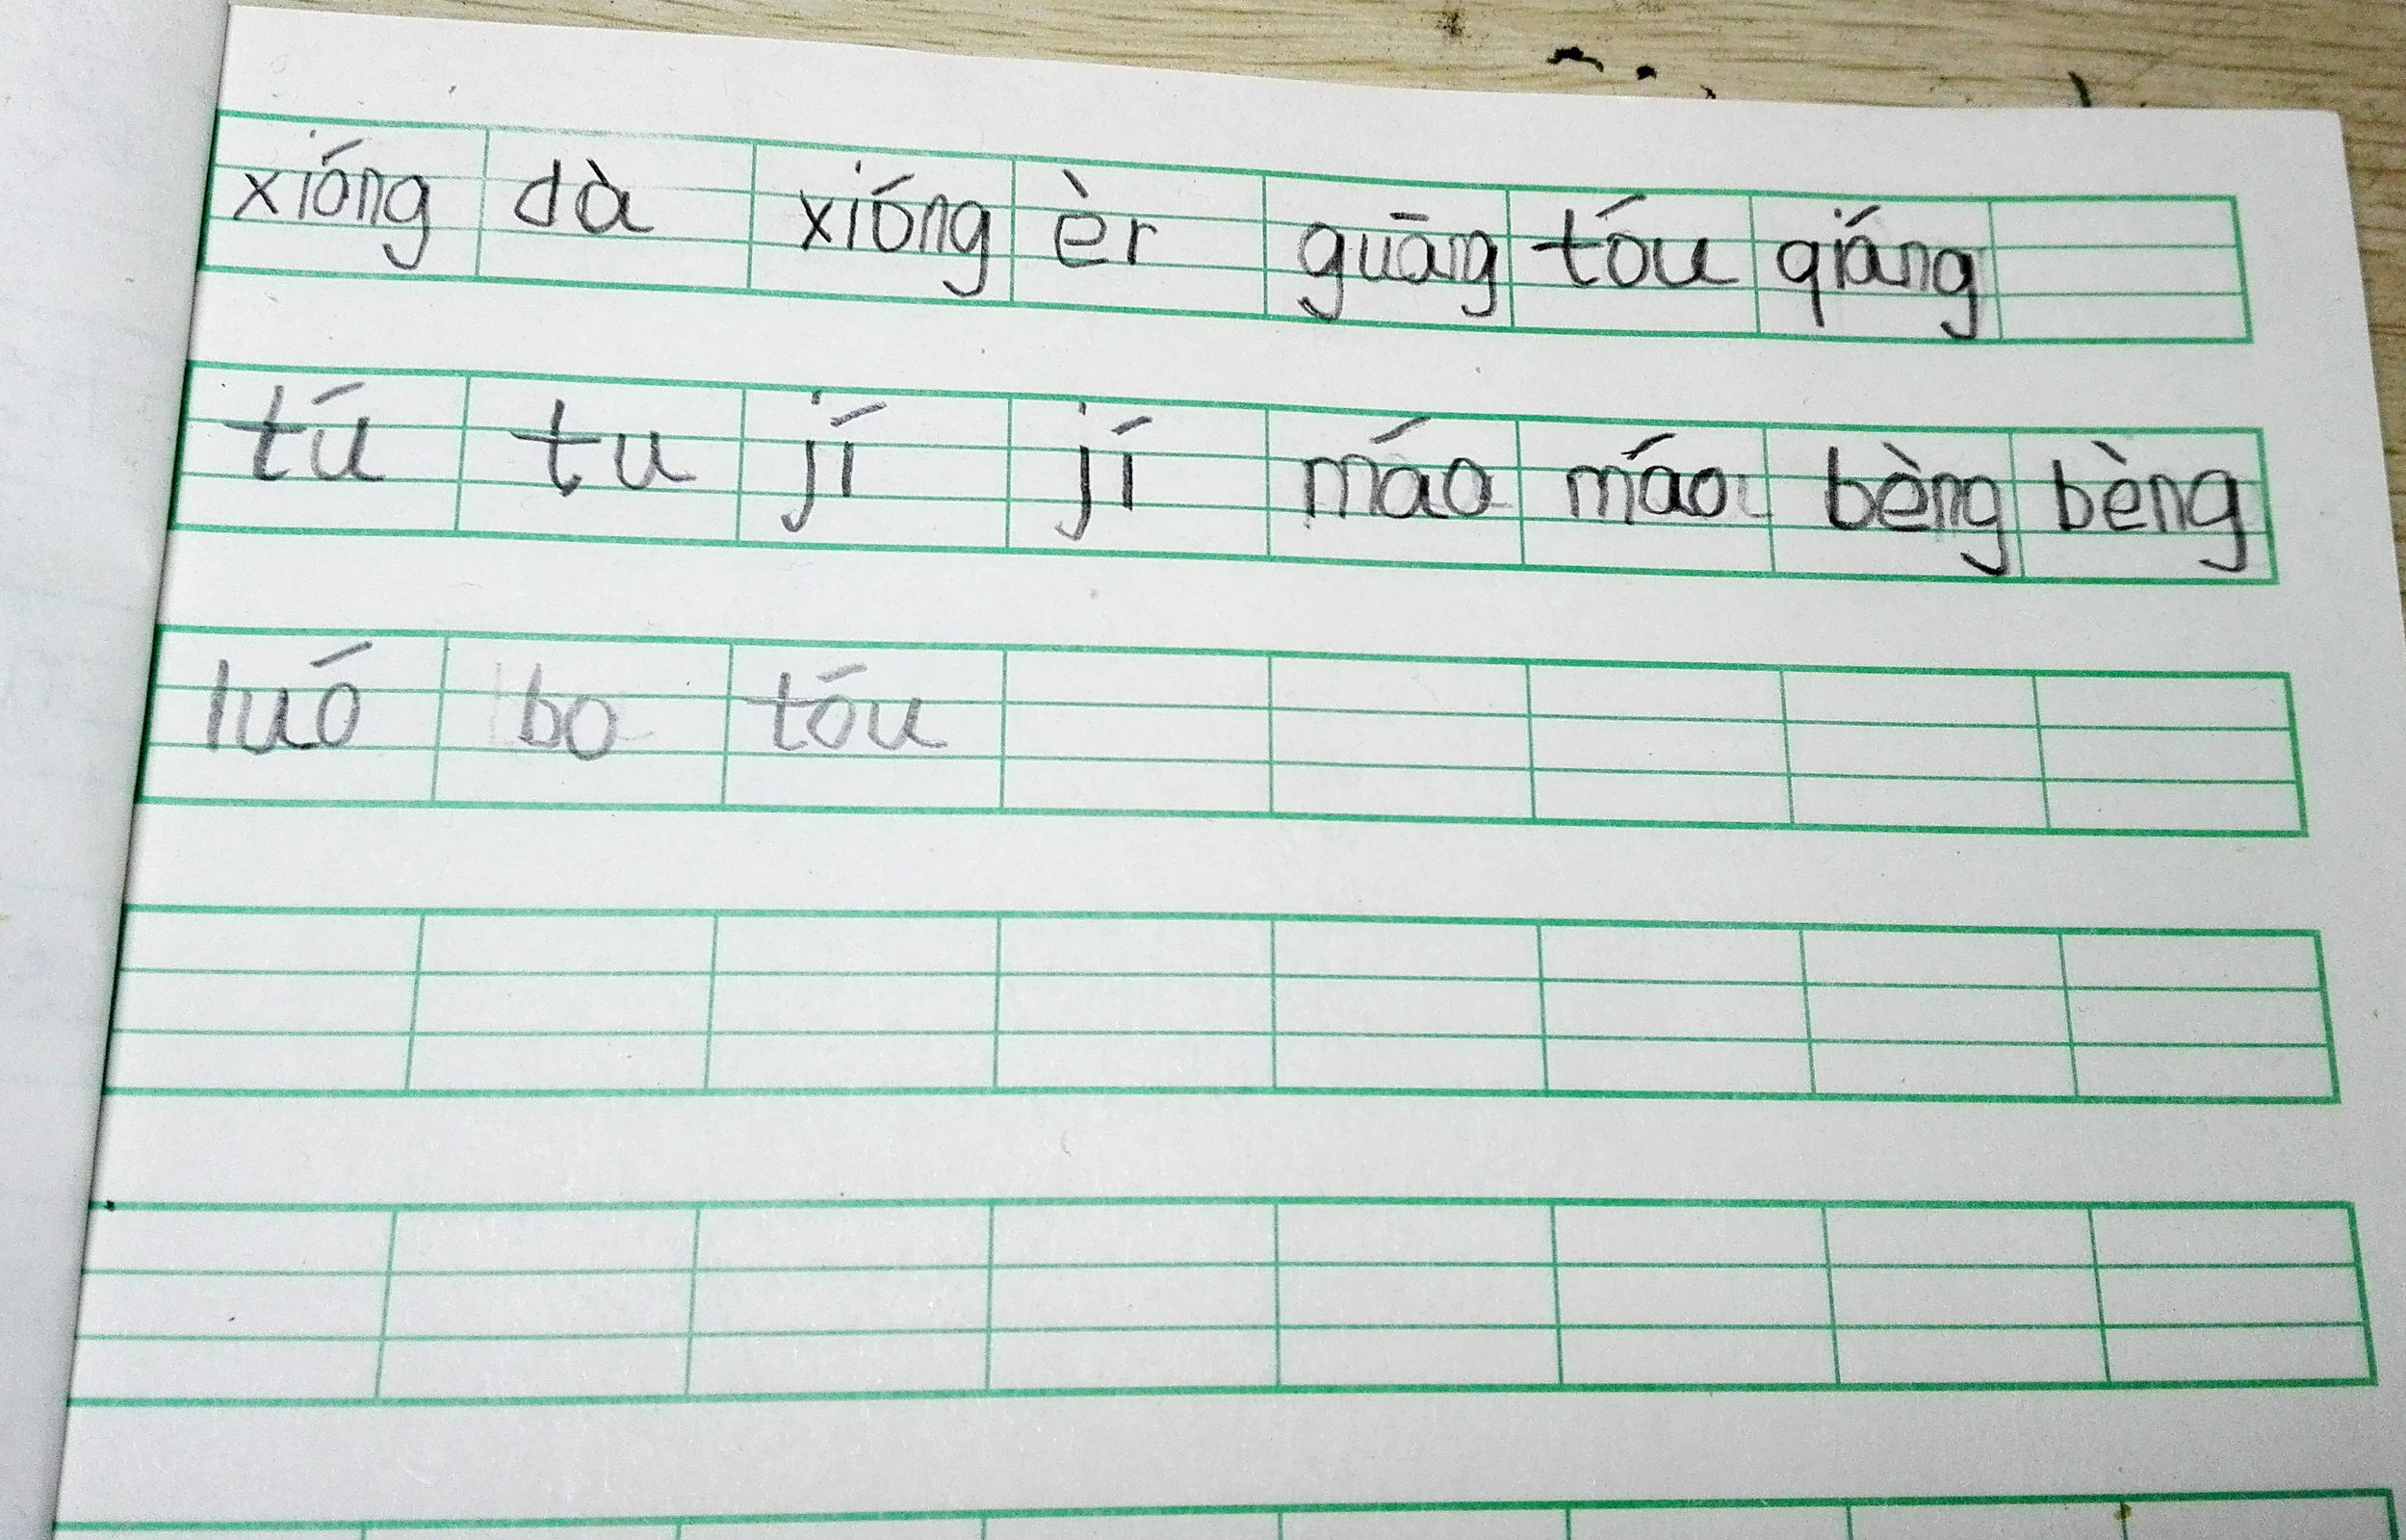 xióng dà xióng èr guāng tóu qiáng
tú tu jí jí máo máo bèng bèng
luó bo tóu